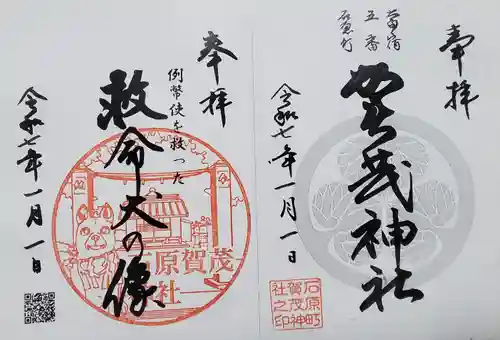 奉拝
五番
賀茂神社
令和七年一月一日
石原町
賀茂神
社之印
奉拝
例幣使を救った
救命犬の像
令和七年一月一日
石原賀茂
社